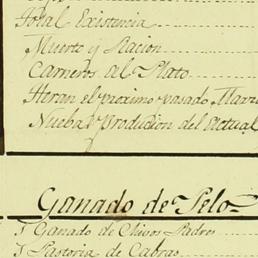 Total Existencia
Muerto y Racion
Carneros al Plato
Heran el proximo pasado
Nueba Producion del Actual
Ganado de Pelo
Ganado de Chivos Padres
Pastoria de Cabras